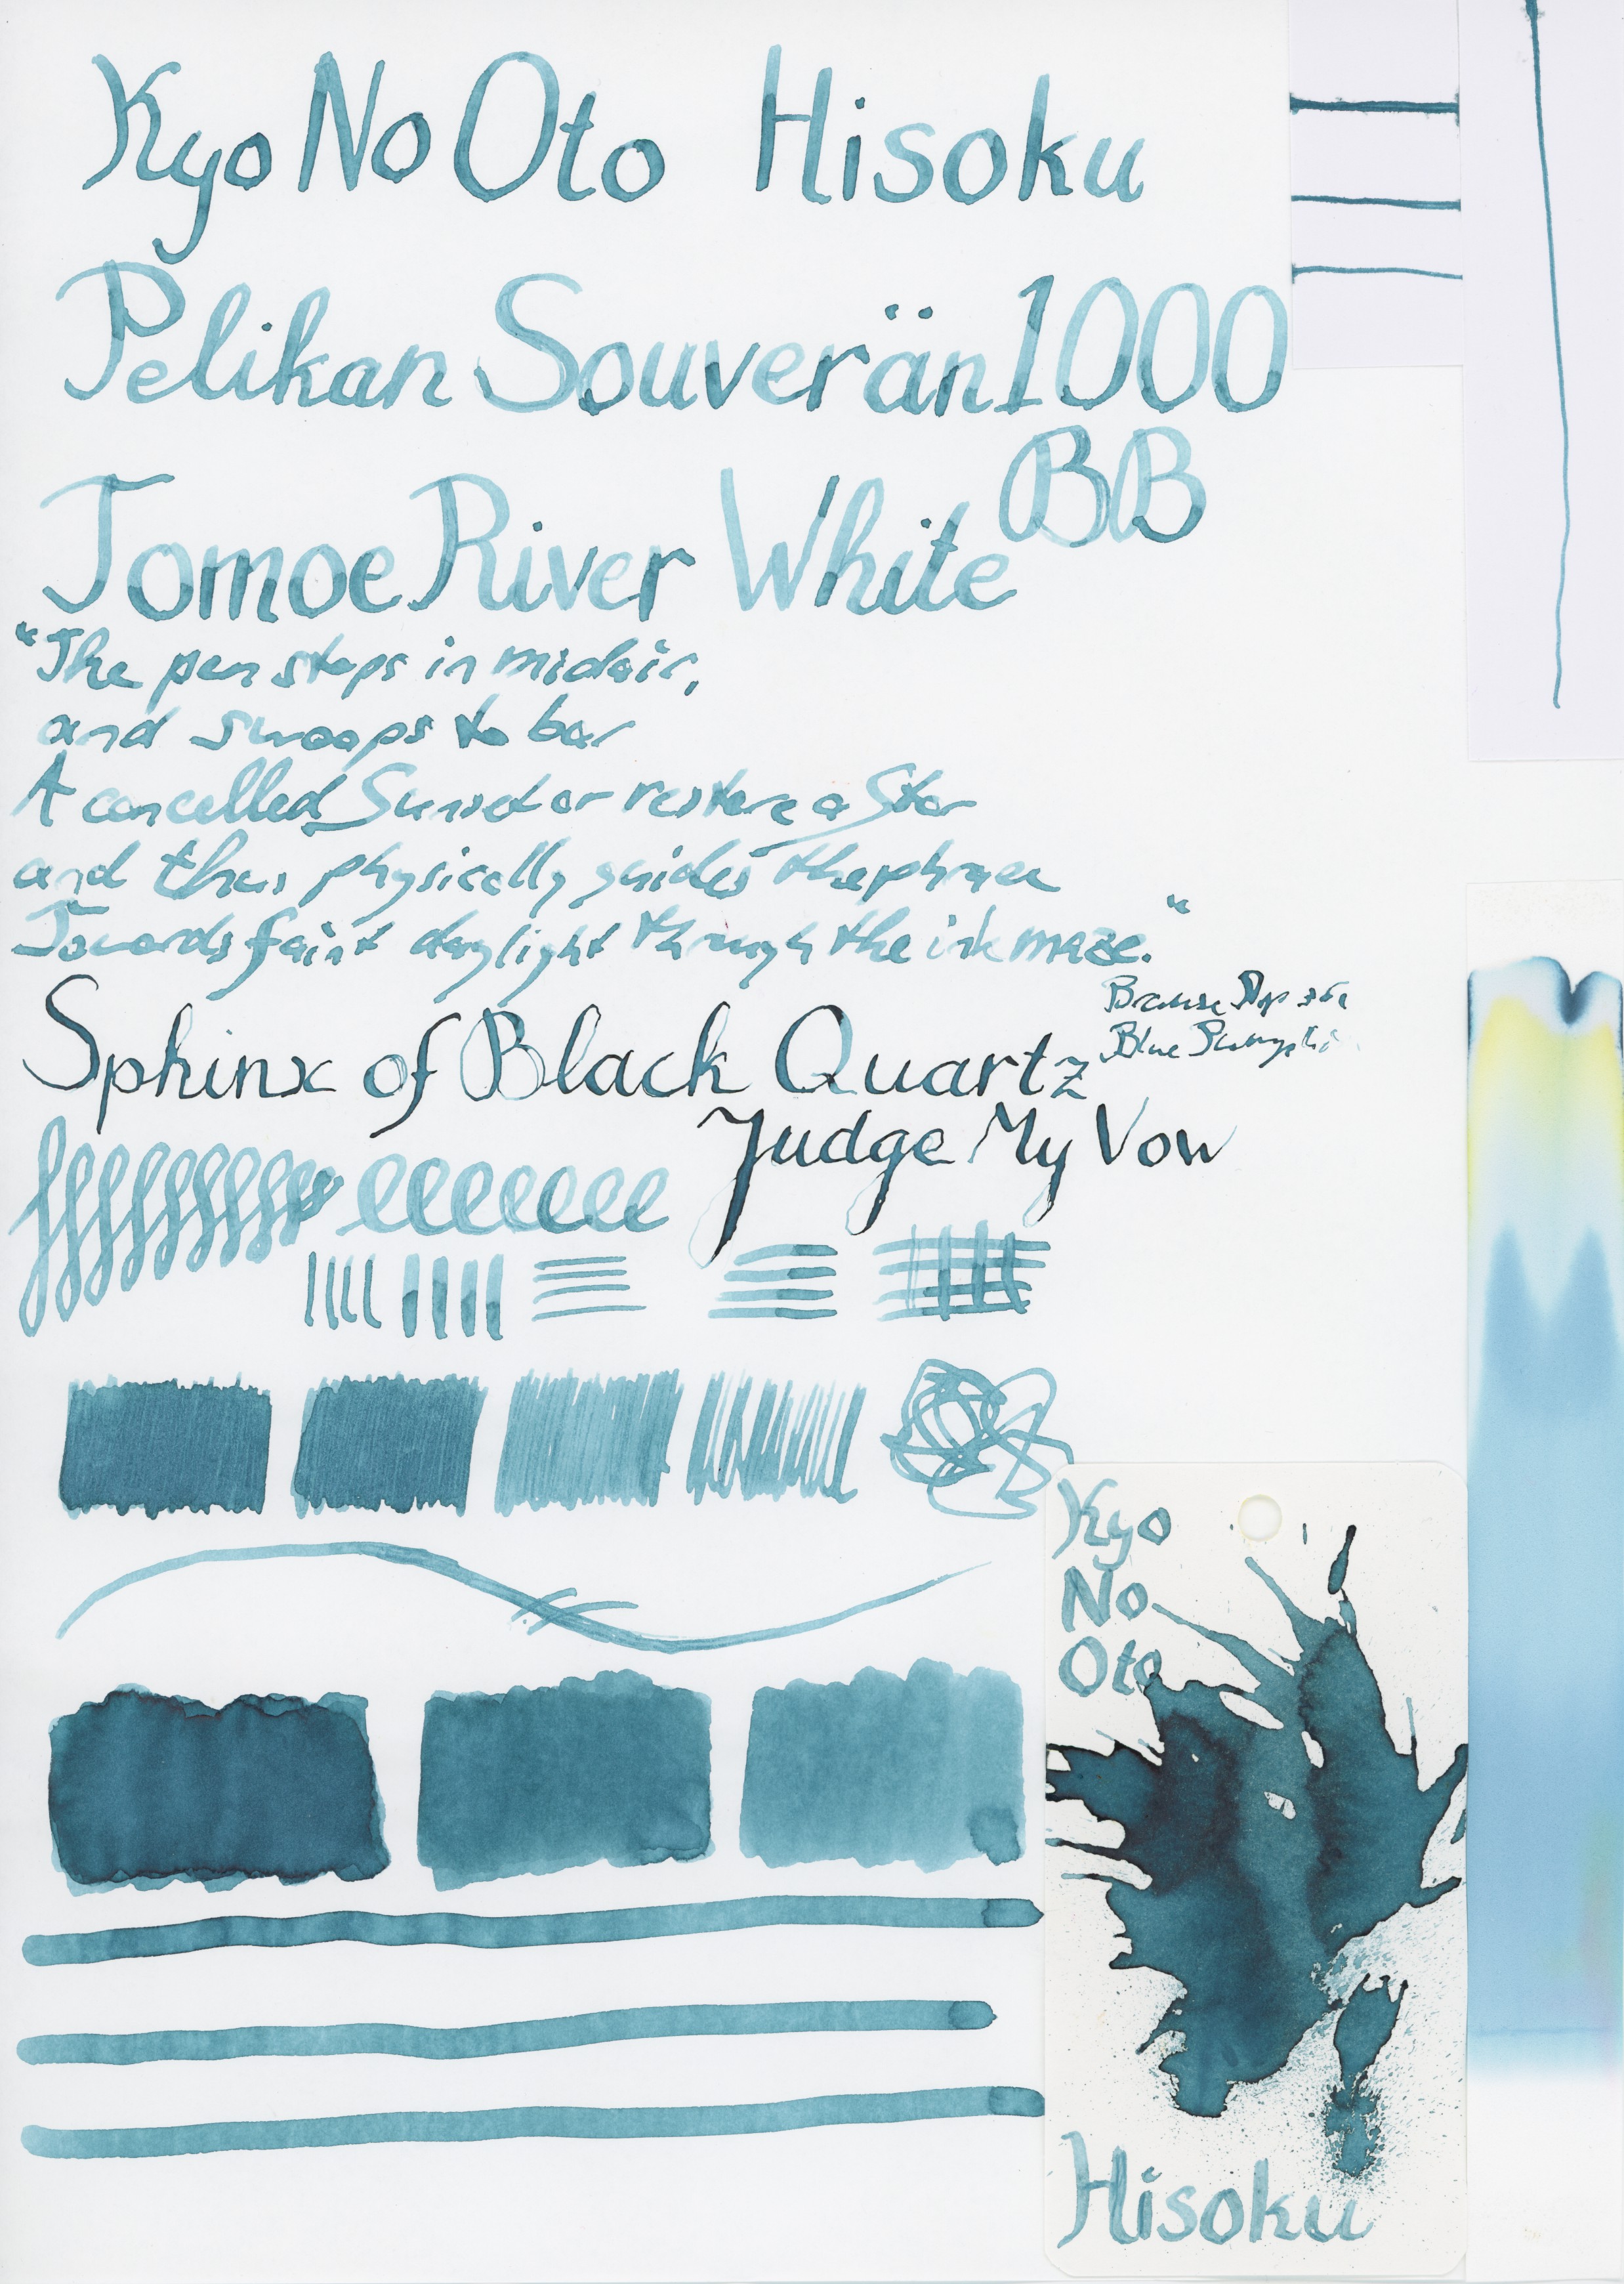 Kyo No Oto Hisoku
Pelikan Souverän 1000
BB
Tomoe River White
"The pen stops in midair,
and swoops to bar
A cancelled Sunset or restore a Star
and thus physically guides the phrase
Towards faint daylight through the ink maze."
Brause
Blue
Sphinx of Black Quartz
Judge My Vow
Kyo
No
Oto
Hisoku